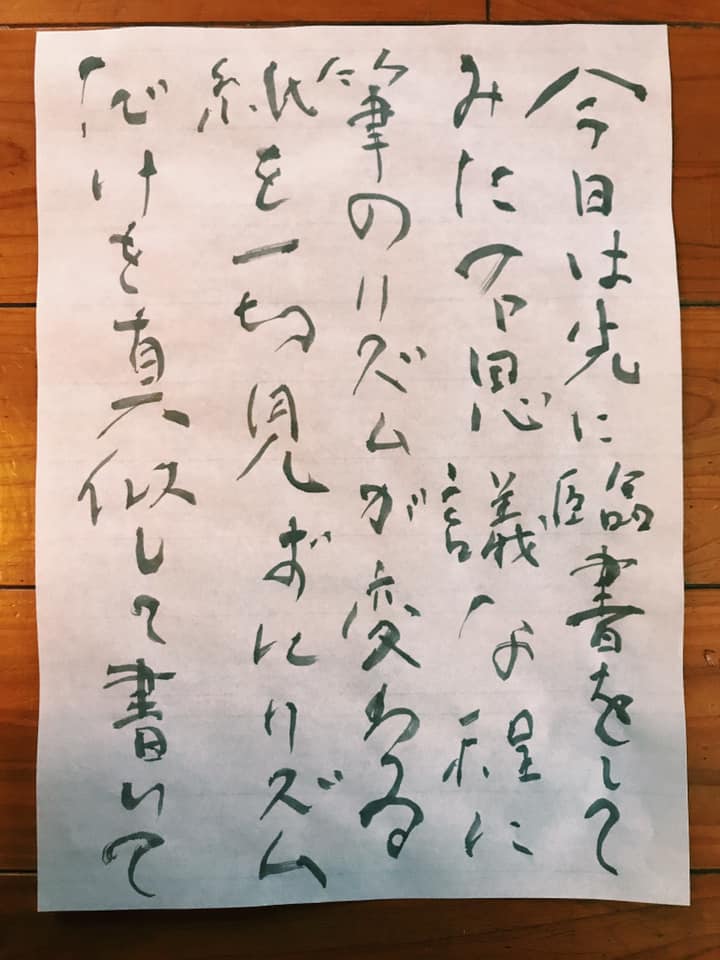 今日は先に臨書をして
みた不思議な程に
筆のリズムが変わる
紙を一切見ずにリズム
だけを真似して書いて